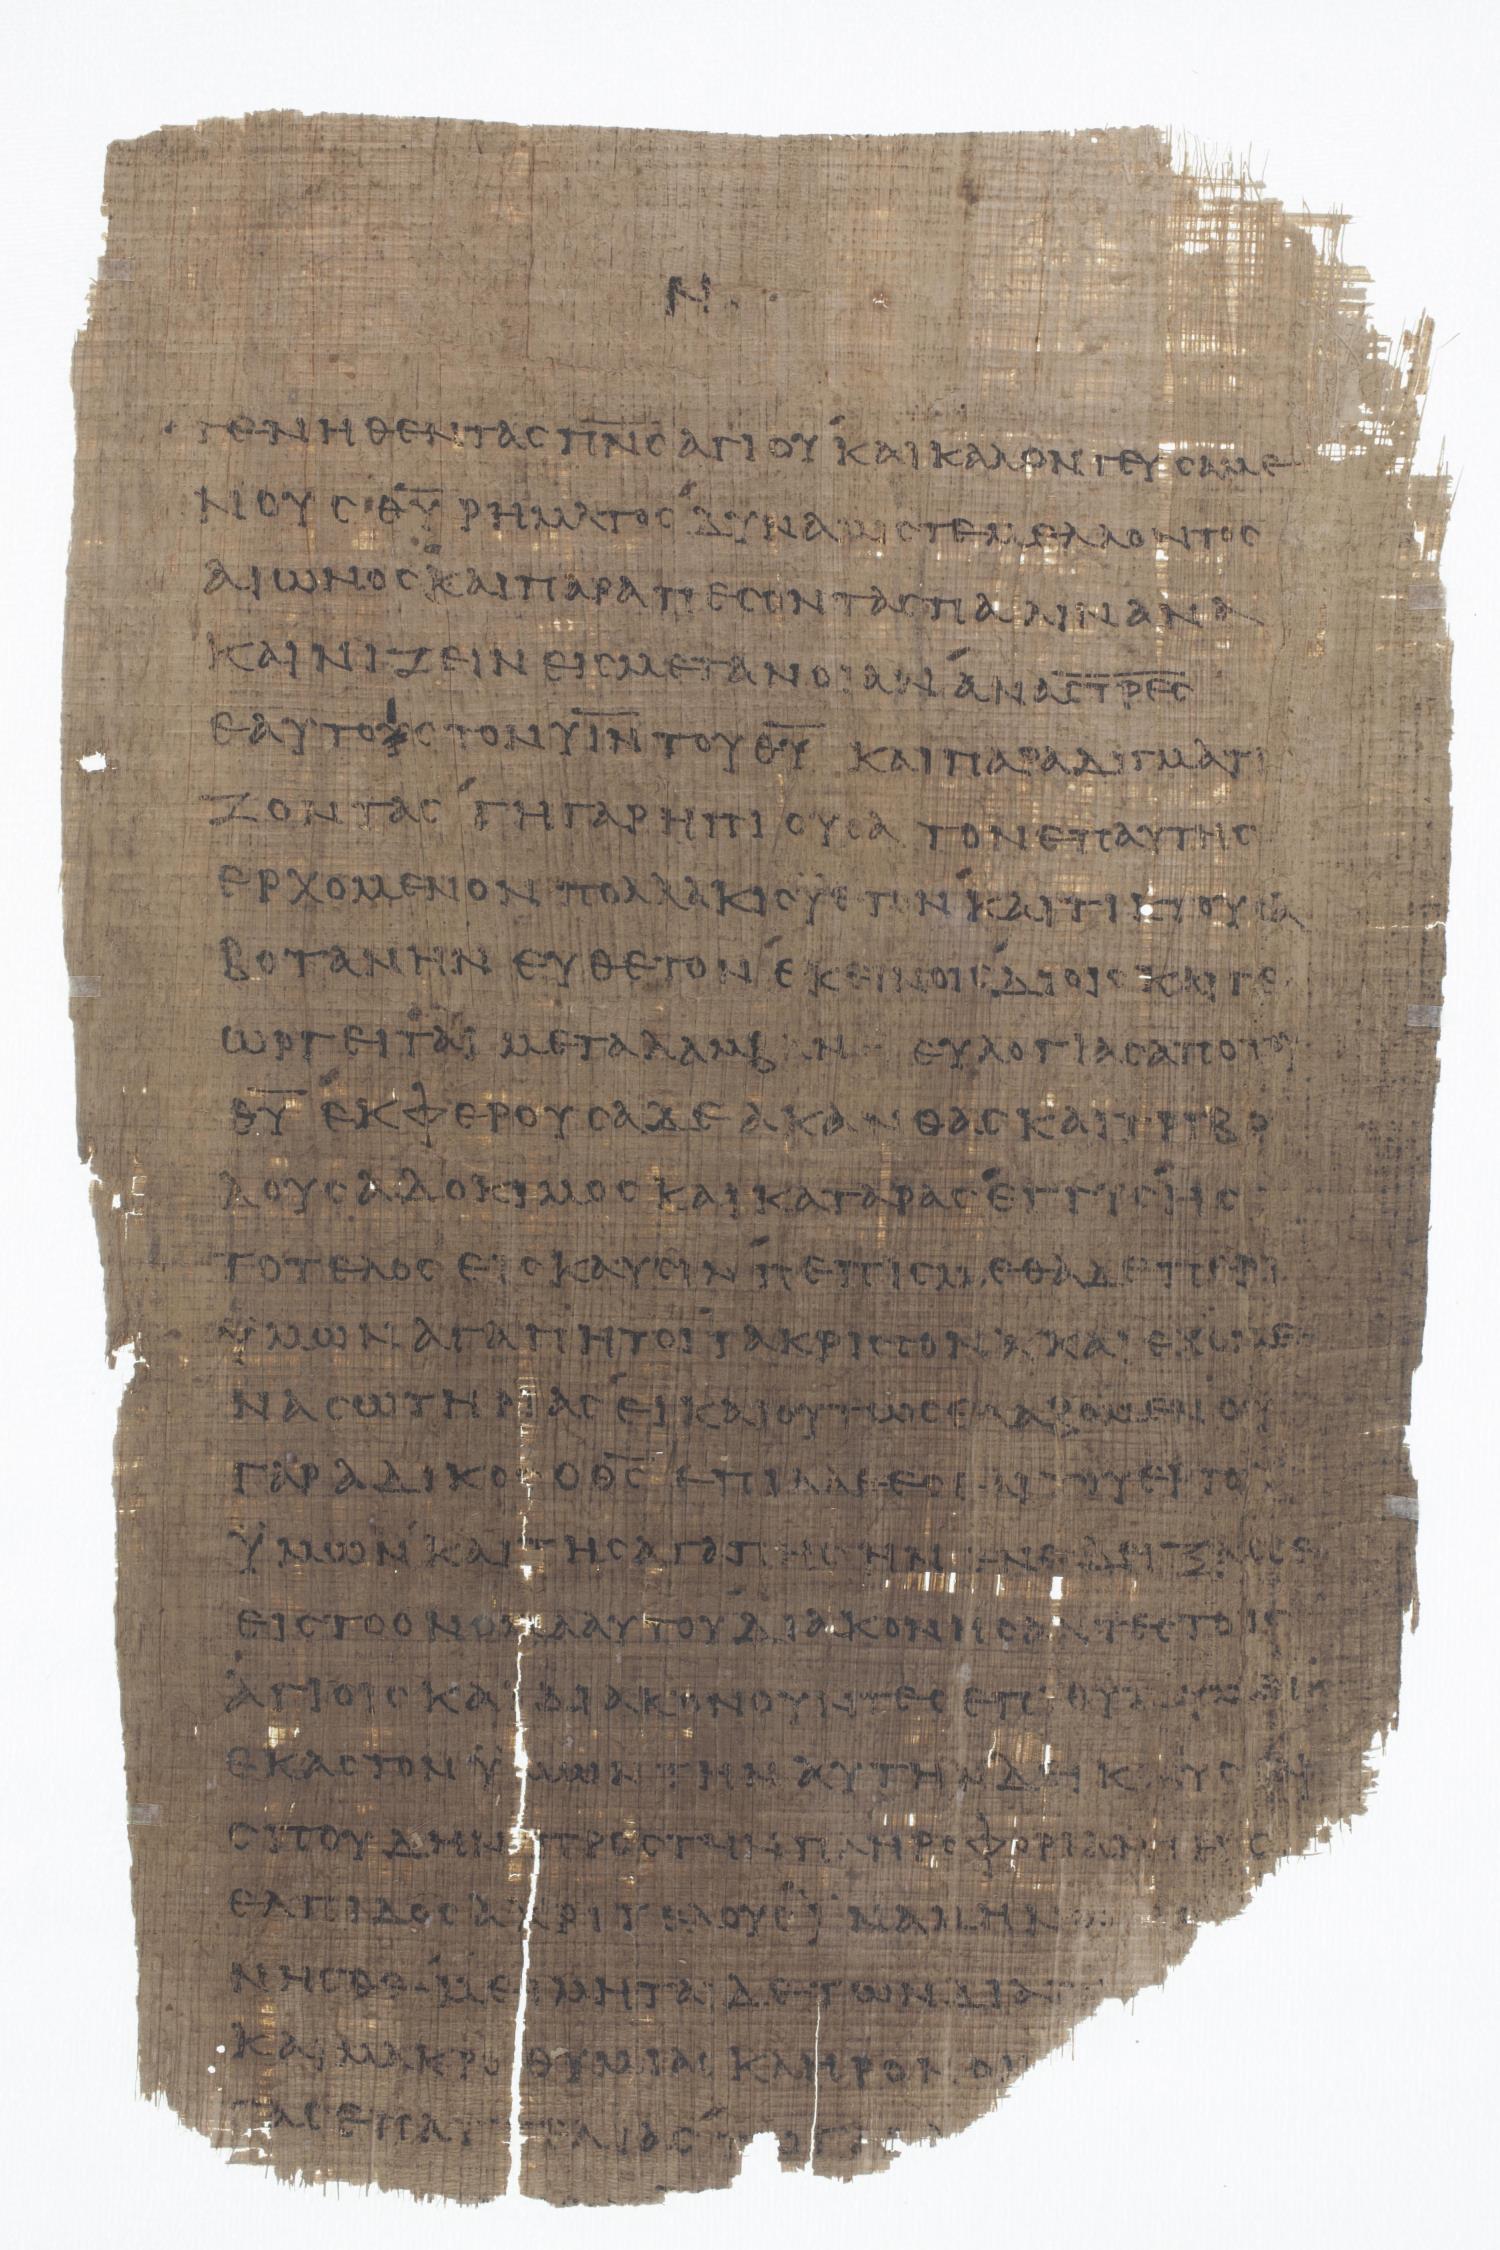 Ν
γενηθεντας π̅ν̅ς̅ αγιου και καλον γευσαμε
νιους θ̅υ̅ ρηματος δυναμις τε μελλοντος
αιωνος και παραπεσοντας παλιν ανα
καινιζειν εις μετανοιαν ανας̅τ̅ρ̅ε̅ς̅
εαυτους τον υ̅ι̅ν̅ του θ̅υ̅ και παραδιγματι
ζοντας γη γαρ η πιουσα τον επ αυτης
ερχομενον πολλακις ϋετον και τικτουσα
βοτανην ευθετον εκεινοις διοις και γε
ωργειται μεταλαμβ ευλογιας απο του
θ̅υ̅ εκφερουσα δε ακανθας και τριβο
λους αδοκιμος και καταρας εγγυς ης
το τελος εις καυσιν πεπισμεθα δε περι
ϋμων αγαπητοι τα κρισσονα και εχομε
να σωτηριας ει και ουτως ελαχομεν ου
γαρ αδικος ο θ̅ς̅ επι του
ϋμων και της αγαπης ην
εις το ονομα αυτου διακονησαντες τοις
αγιοις και διακονουντες
εκαστον ϋμων την αυτην
σπουδην προς την πληροφοριαν της
ελπιδος αχρι τελους ϊνα μη
νησθε μειμηται δε των δια
και μακροθυμιας κληρονομ
τας επαγγελιας